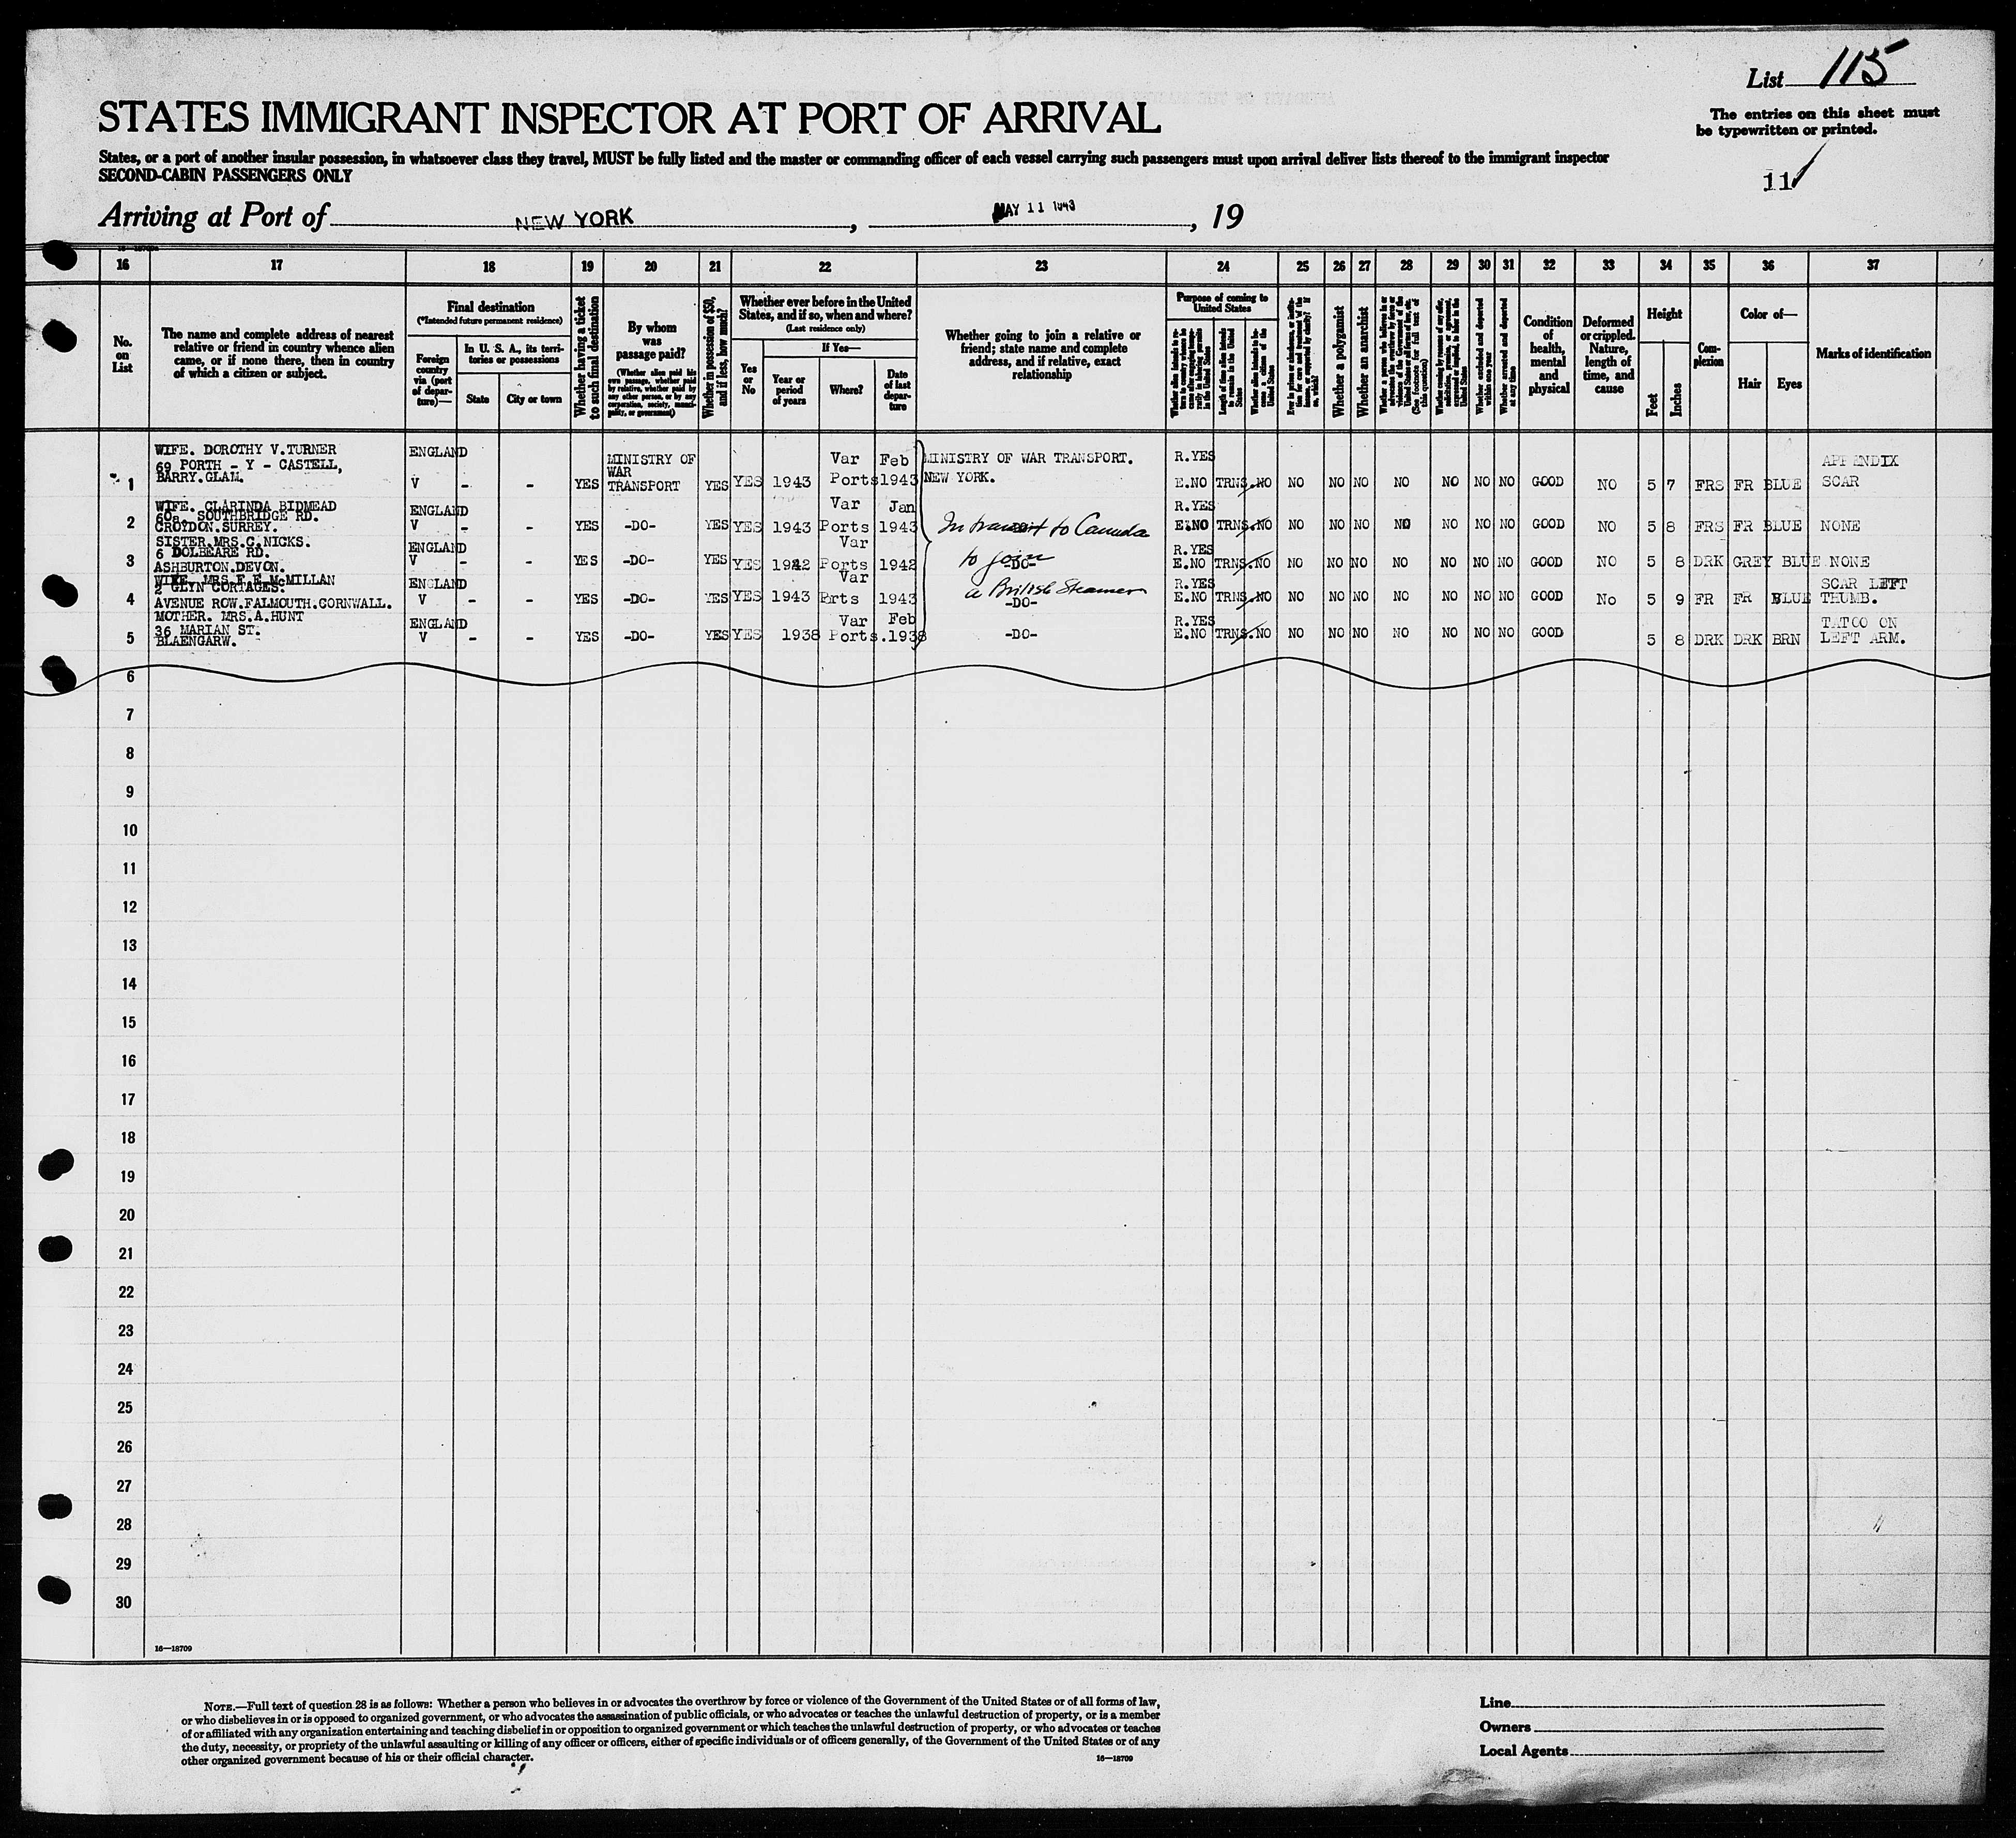 List 115
The entries on this sheet must
be typewritten or printed.
11
STATES IMMIGRANT INSPECTOR AT PORT OF ARRIVAL
States, or a port of another insular possession, in whatsoever class they travel, MUST be fully listed and the master or commanding officer of each vessel carrying such passengers must upon arrival deliver lists thereof to the immigrant inspector
SECOND-CABIN PASSENGERS ONLY
Arriving at Port of NEW YORK, MAY 11 1943, 19
16 17 18 19 20 21 22 23 24 25 26 27 28 29 30 31 32 33 34 35 36 37
No. on List
The name and complete address of nearest
relative or friend in country whence alien
came, or if none there, then in country
of which a citizen or subject.
Final destination
(*Intended future permanent residence)
Foreign country via (port of departure)—
In U. S. A., its territories or possessions
State
City or town
Whether having a ticket to such final destination
By whom was passage paid?
(Whether alien paid his own passage, whether paid by relative, whether paid by any other person, or by any corporation, society, municipality, or government)
Whether in possession of $50, and if less, how much?
Whether ever before in the United
States, and if so, when and where?
(Last residence only)
If Yes—
Yes or No
Year or period of years
Where?
Date of last departure
Whether going to join a relative or
friend; state name and complete
address, and if relative, exact
relationship
Purpose of coming to United States
Length of time alien intends to remain in the United States
Whether alien intends to become a citizen of the United States
Whether a polygamist
Whether an anarchist
Whether excluded and deported within one year
Whether arrested and deported at any time
Condition of health, mental and physical
Deformed or crippled. Nature, length of time, and cause
Height
Feet
Inches
Complexion
Color of—
Hair
Eyes
Marks of identification
WIFE. DOROTHY V.TURNER ENGLAND MINISTRY OF Var Feb MINISTRY OF WAR TRANSPORT. R.YES APPENDIX
69 PORTH - Y - CASTELL, WAR
1 BARRY.GLAM. V - - YES TRANSPORT YES YES 1943 Ports 1943 NEW YORK. E.NO TRNS.NO NO NO NO NO NO NO NO GOOD NO 5 7 FRS FR BLUE SCAR
WIFE. CLARINDA BIDMEAD ENGLAND Var Jan R.YES
60a. SOUTHBRIDGE RD.
2 CROYDON.SURREY. V - - YES -DO- YES YES 1943 Ports 1943 In transit to Canada E.NO TRNS.NO NO NO NO NO NO NO NO GOOD NO 5 8 FRS FR BLUE NONE
SISTER.MRS.C.NICKS. ENGLAND Var R.YES
6 DOLBEARE RD.
3 ASHBURTON.DEVON. V - - YES -DO- YES YES 1942 Ports 1942 to join -DO- E.NO TRNS.NO NO NO NO NO NO NO NO GOOD NO 5 8 DRK GREY BLUE NONE
WIFE. MRS.F.E.McMILLAN ENGLAND Var a British Steamer R.YES SCAR LEFT
2 GLYN COTTAGES.
4 AVENUE ROW.FALMOUTH.CORNWALL. V - - YES -DO- YES YES 1943 Prts 1943 -DO- E.NO TRNS.NO NO NO NO NO NO NO NO GOOD No 5 9 FR FR BLUE THUMB.
MOTHER. MRS.A.HUNT ENGLAND Var Feb R.YES TATOO ON
36 MARIAN ST.
5 BLAENGARW. V - - YES -DO- YES YES 1938 Ports.1938 -DO- E.NO TRNS.NO NO NO NO NO NO NO NO GOOD 5 8 DRK DRK BRN LEFT ARM.
6
7
8
9
10
11
12
13
14
15
16
17
18
19
20
21
22
23
24
25
26
27
28
29
30
16—18709
NOTE.—Full text of question 28 is as follows: Whether a person who believes in or advocates the overthrow by force or violence of the Government of the United States or of all forms of law,
or who disbelieves in or is opposed to organized government, or who advocates the assassination of public officials, or who advocates or teaches the unlawful destruction of property, or is a member
of or affiliated with any organization entertaining and teaching disbelief in or opposition to organized government or which teaches the unlawful destruction of property, or who advocates or teaches
the duty, necessity, or propriety of the unlawful assaulting or killing of any officer or officers, either of specific individuals or of officers generally, of the Government of the United States or of any
other organized government because of his or their official character. 16—18709
Line
Owners
Local Agents